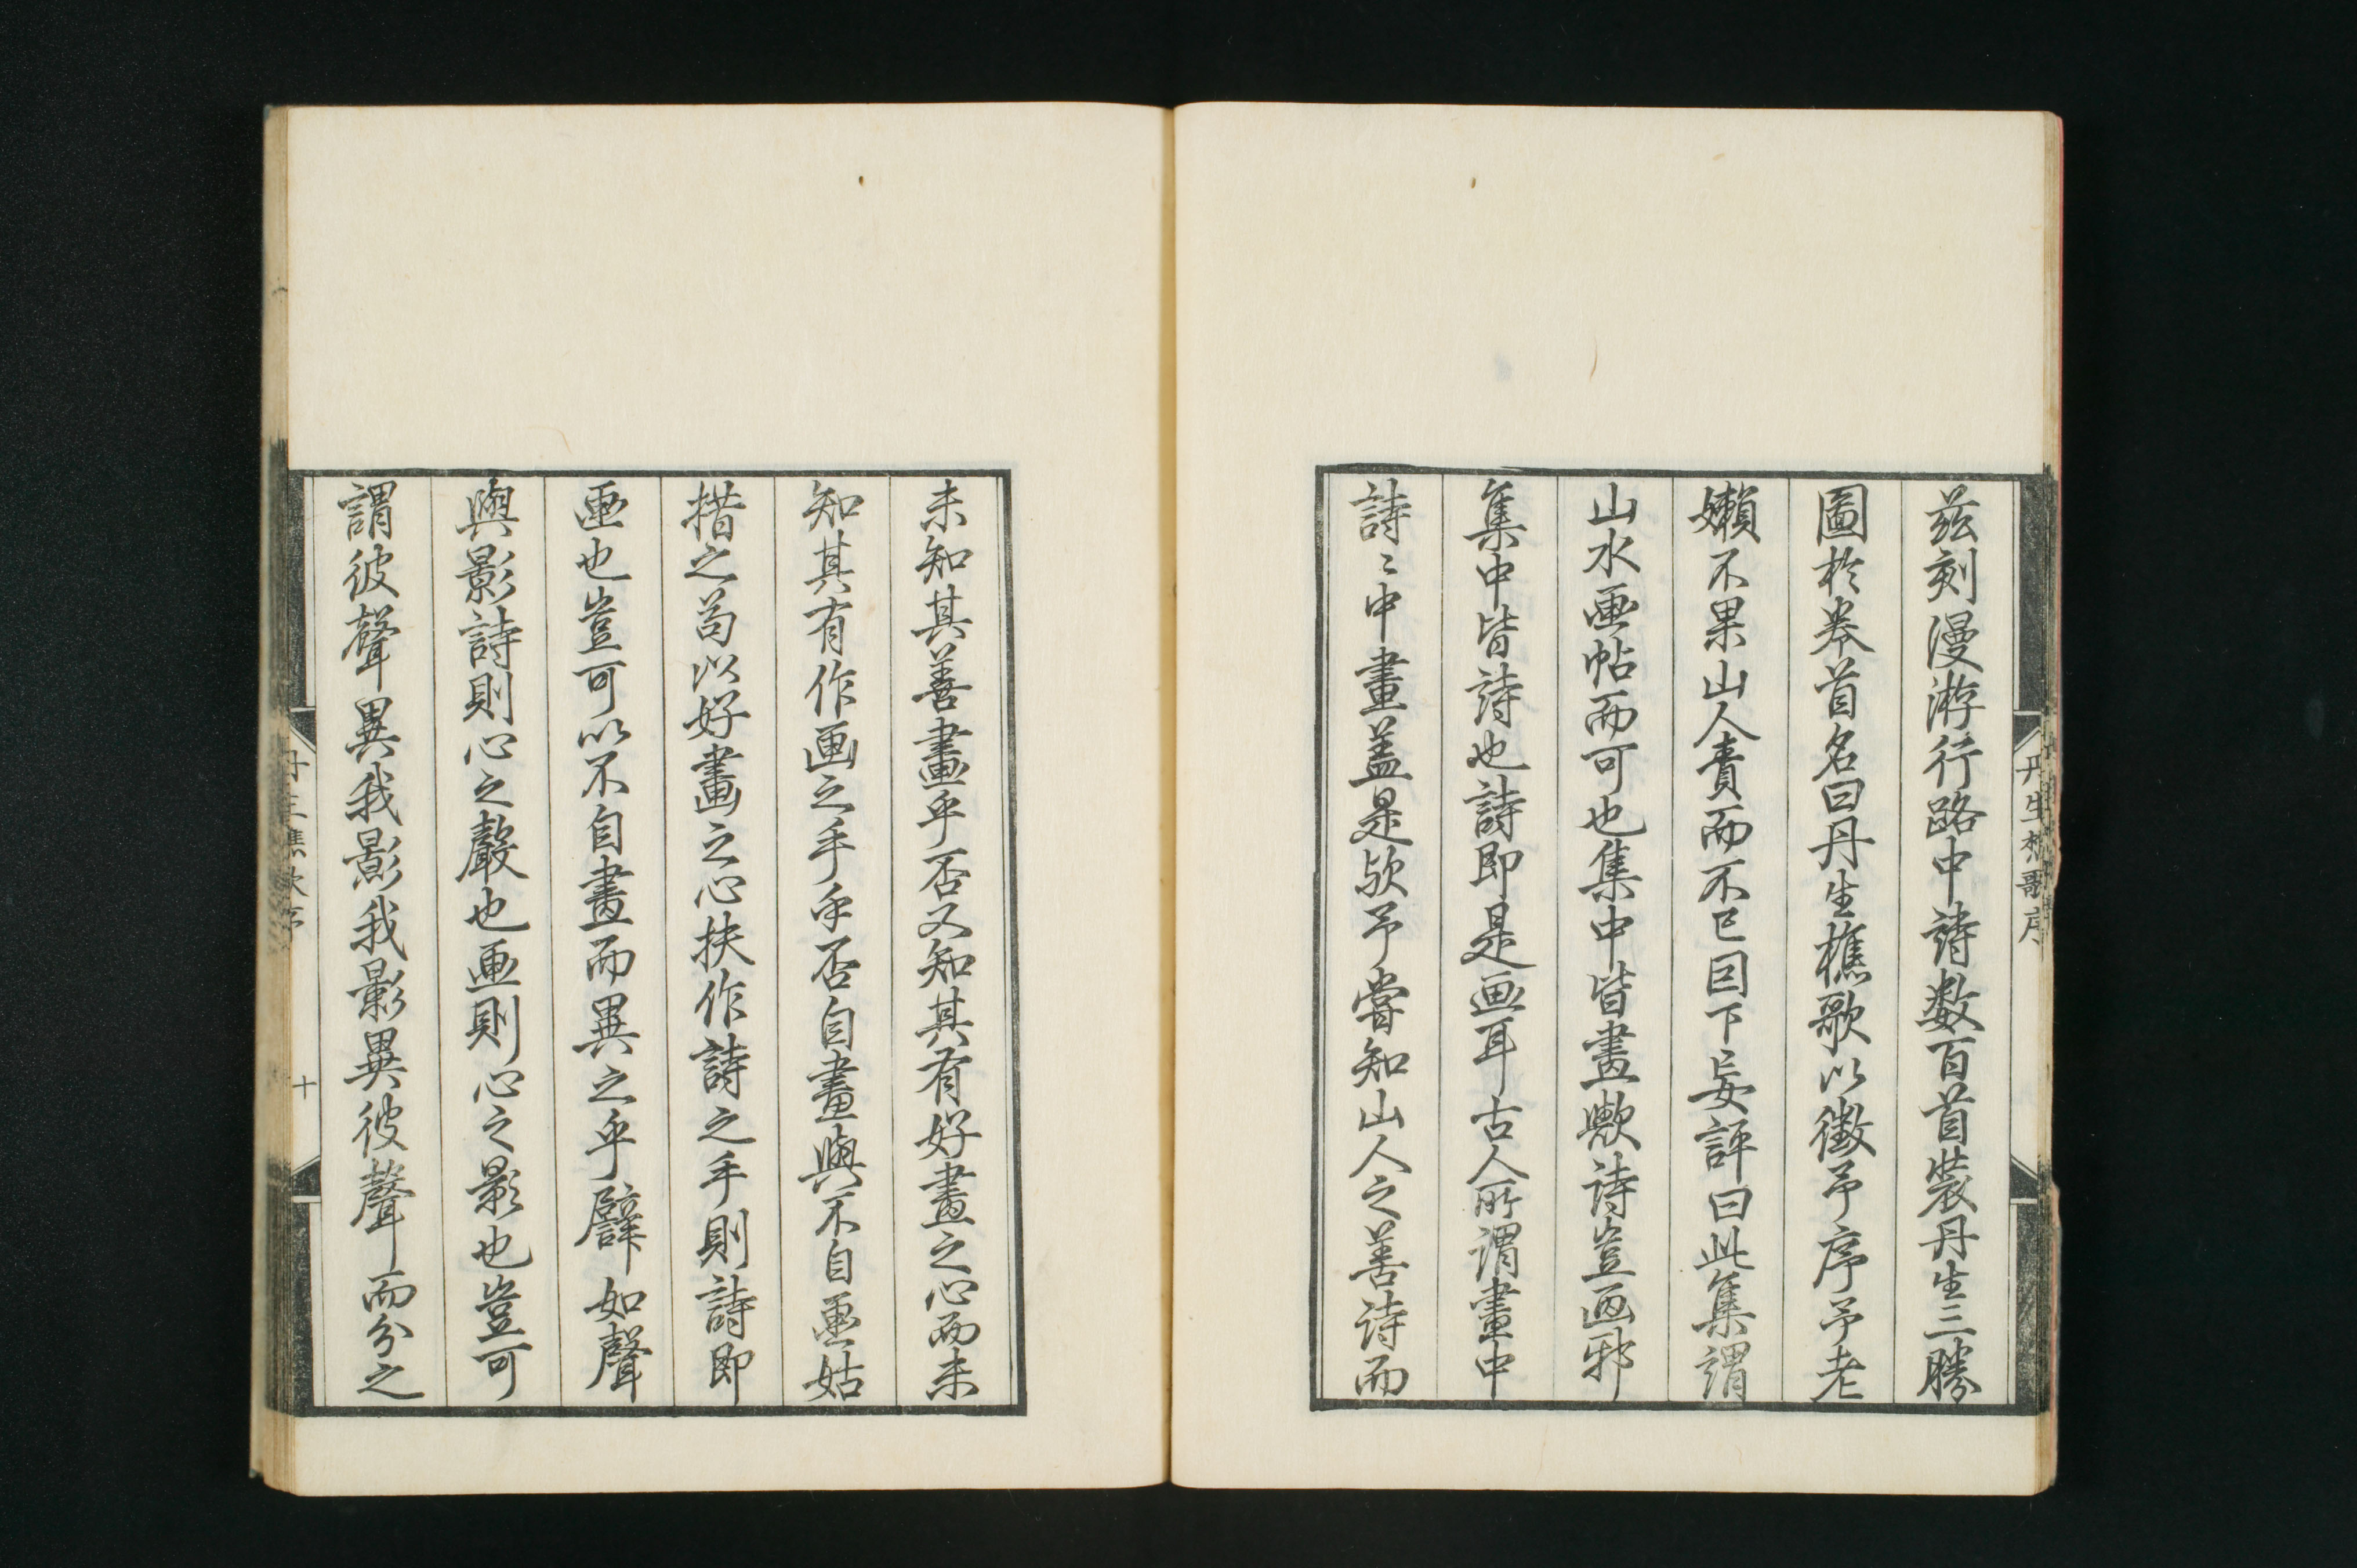 茲刻漫游行路中詩数百首裝丹生三勝
圖於卷首名曰丹生樵歌以徵予序予老
嬾不果山人責而不已因下妄評曰此集謂
山水画帖而可也集中皆畫歟詩豈画邪
集中皆詩也詩即是画耳古人所謂畫中
詩〻中畫蓋是歟予嘗知山人之善詩而
丹生樵歌序
未知其善畫乎否又知其有好畫之心而未
知其有作画之手乎否自畫與不自画姑
措之苟以好畫之心扶作詩之手則詩即
画也豈可以不自畫而異之乎譬如聲
與影詩則心之聲也画則心之影也豈可
謂彼聲異我影我影異彼聲而分之
丹生樵歌序
十